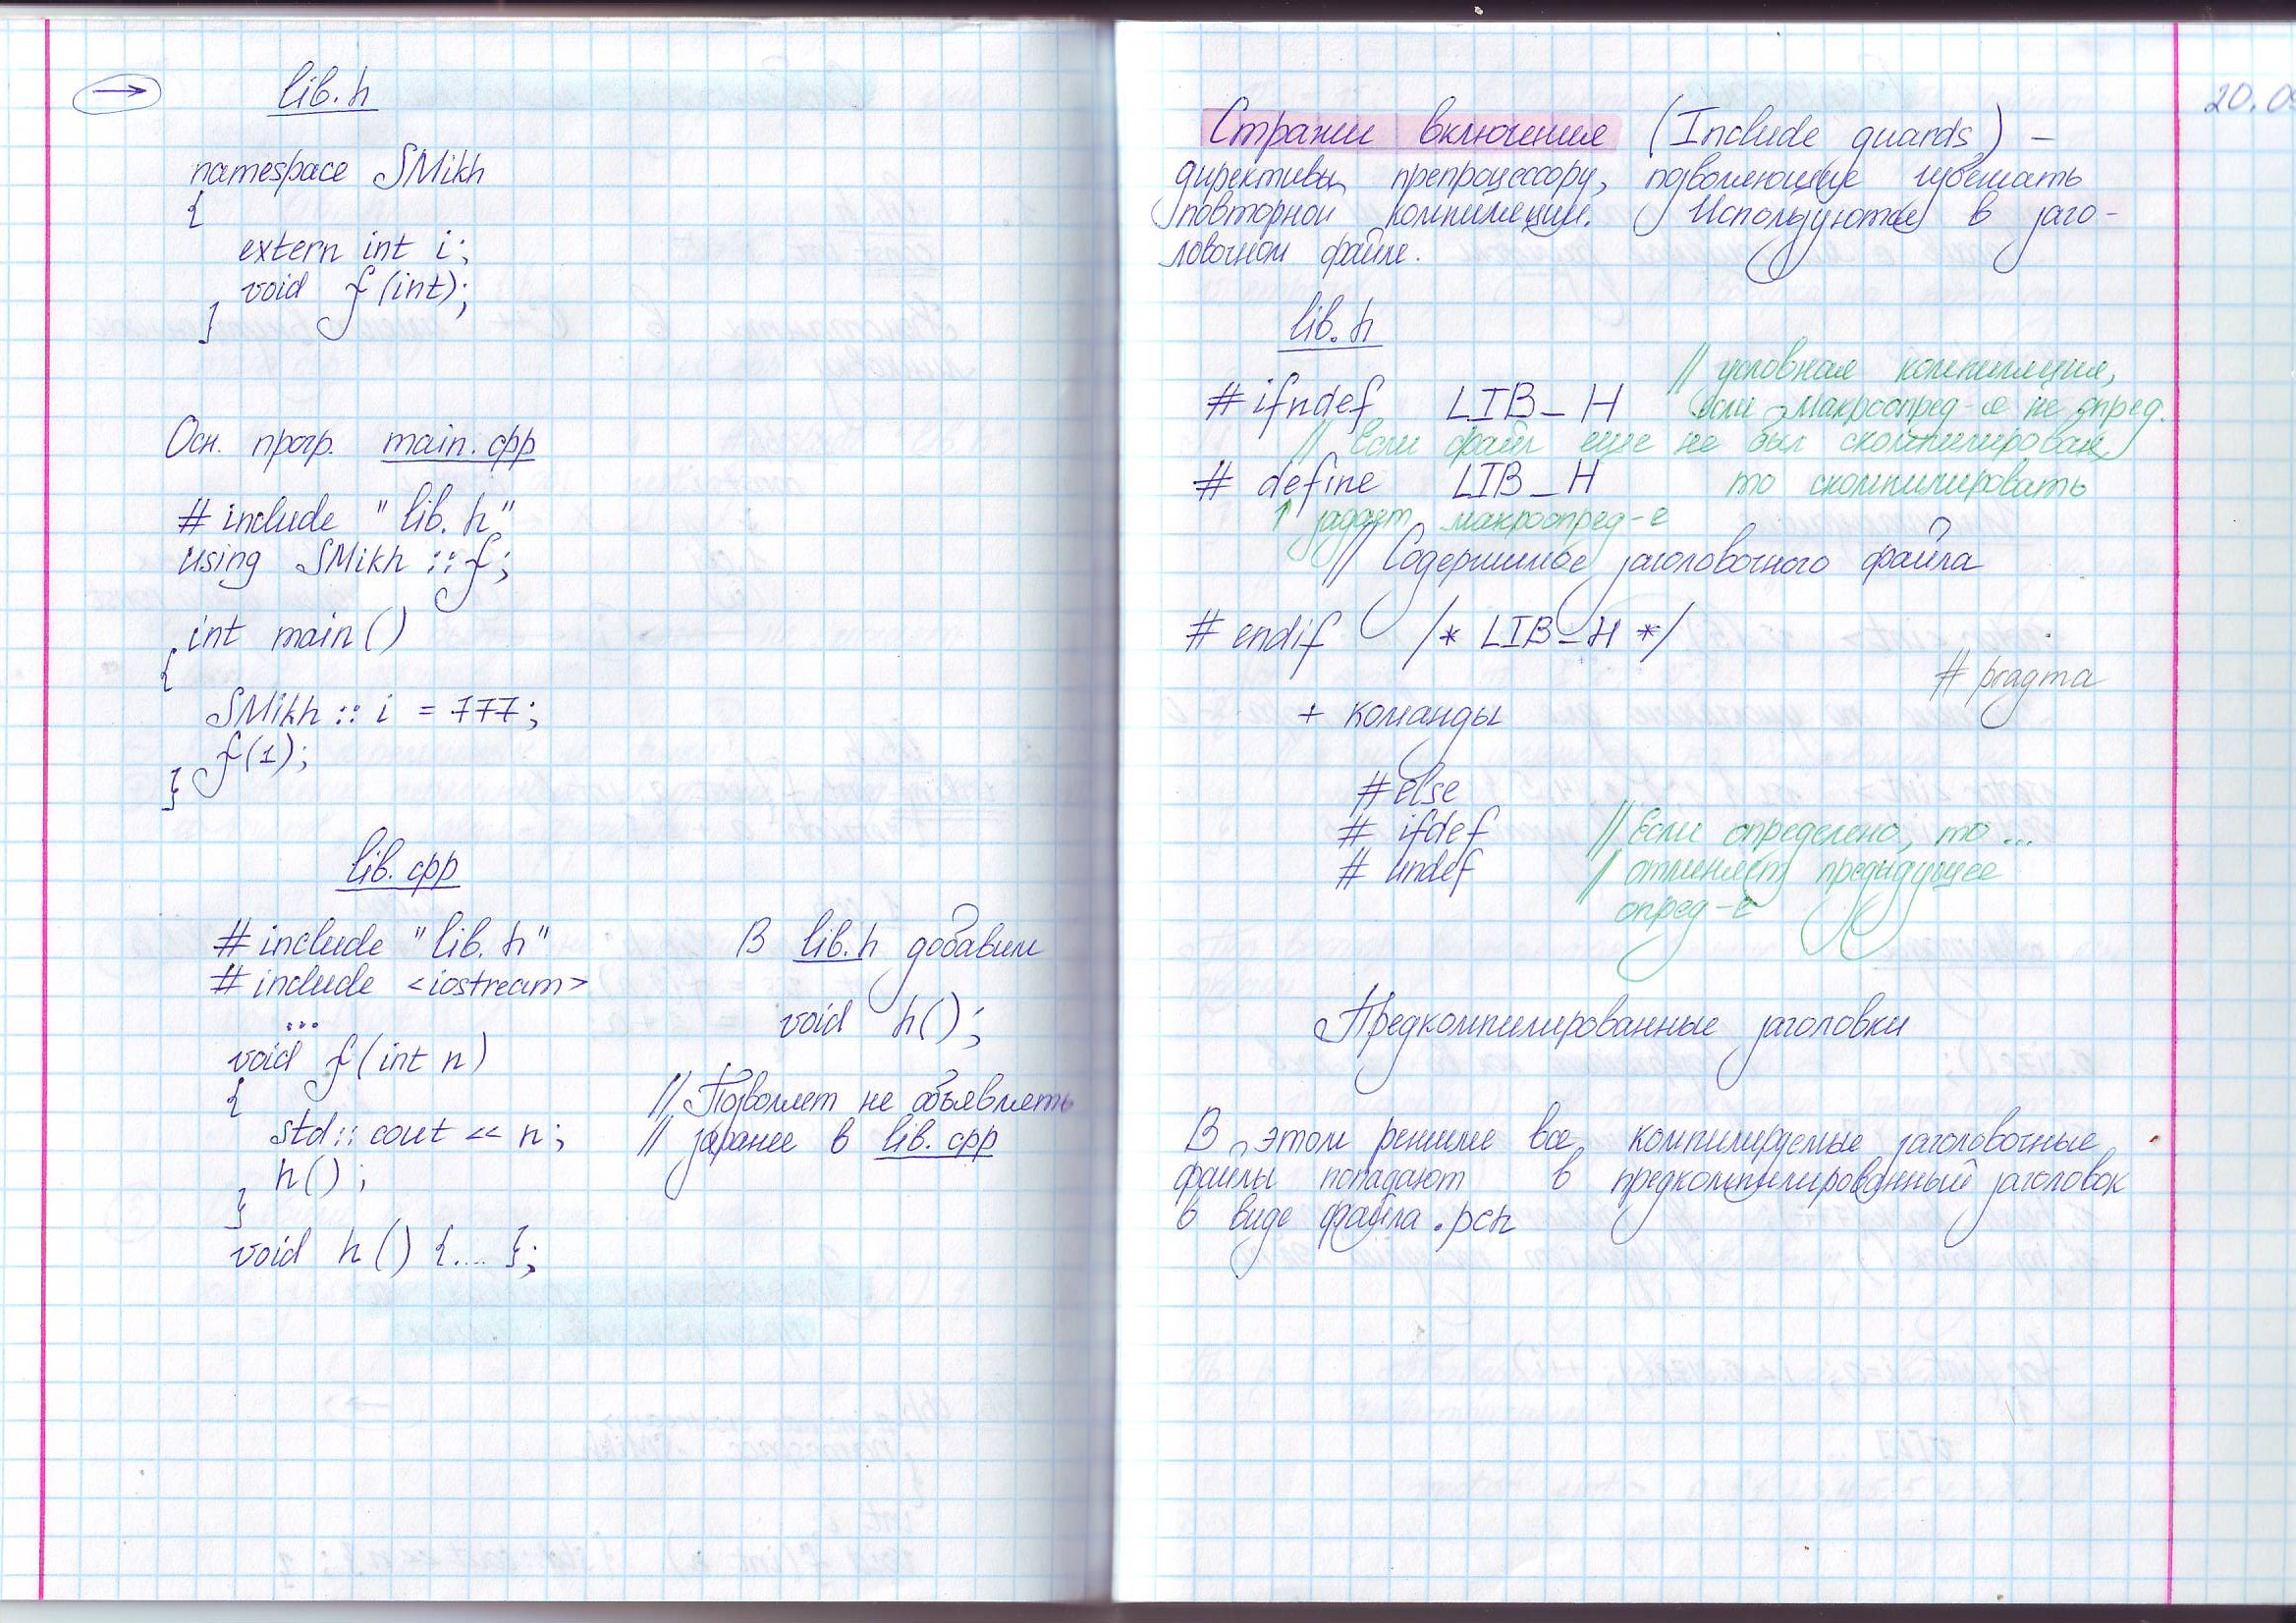 → lib.h
namespace SMikh
{
extern int i;
void f(int);
}
Осн. прогр. main.cpp
# include "lib.h"
using SMikh :: f;
int main()
{
SMikh :: i = 777;
f(1);
}
lib.cpp
# include "lib.h"
# include <iostream>
...
void f(int n)
{
std:: cout << n;
h();
}
void h() {....};
В lib.h добавим
void h();
// Позволяет не объявлять
// заранее в lib.cpp
20.09
Стражи включения (Include guards) –
директивы препроцессору, позволяющие избежать
повторной компиляции. Используются в заго-
ловочном файле.
lib.h
// условная компиляция,
# ifndef LIB_H если макроопред-е не опред.
// Если файл еще не был скомпилирован,
# define LIB_H то скомпилировать
↑ задает макроопред-е
// Содержимое заголовочного файла
# endif /* LIB_H */
# pragma
+ команды
# else
# ifdef // Если определено, то ...
# undef // отменяет предыдущее
опред-е
Предкомпилированные заголовки
В этом режиме все компилируемые заголовочные
файлы попадают в предкомпилированный заголовок
в виде файла .pch